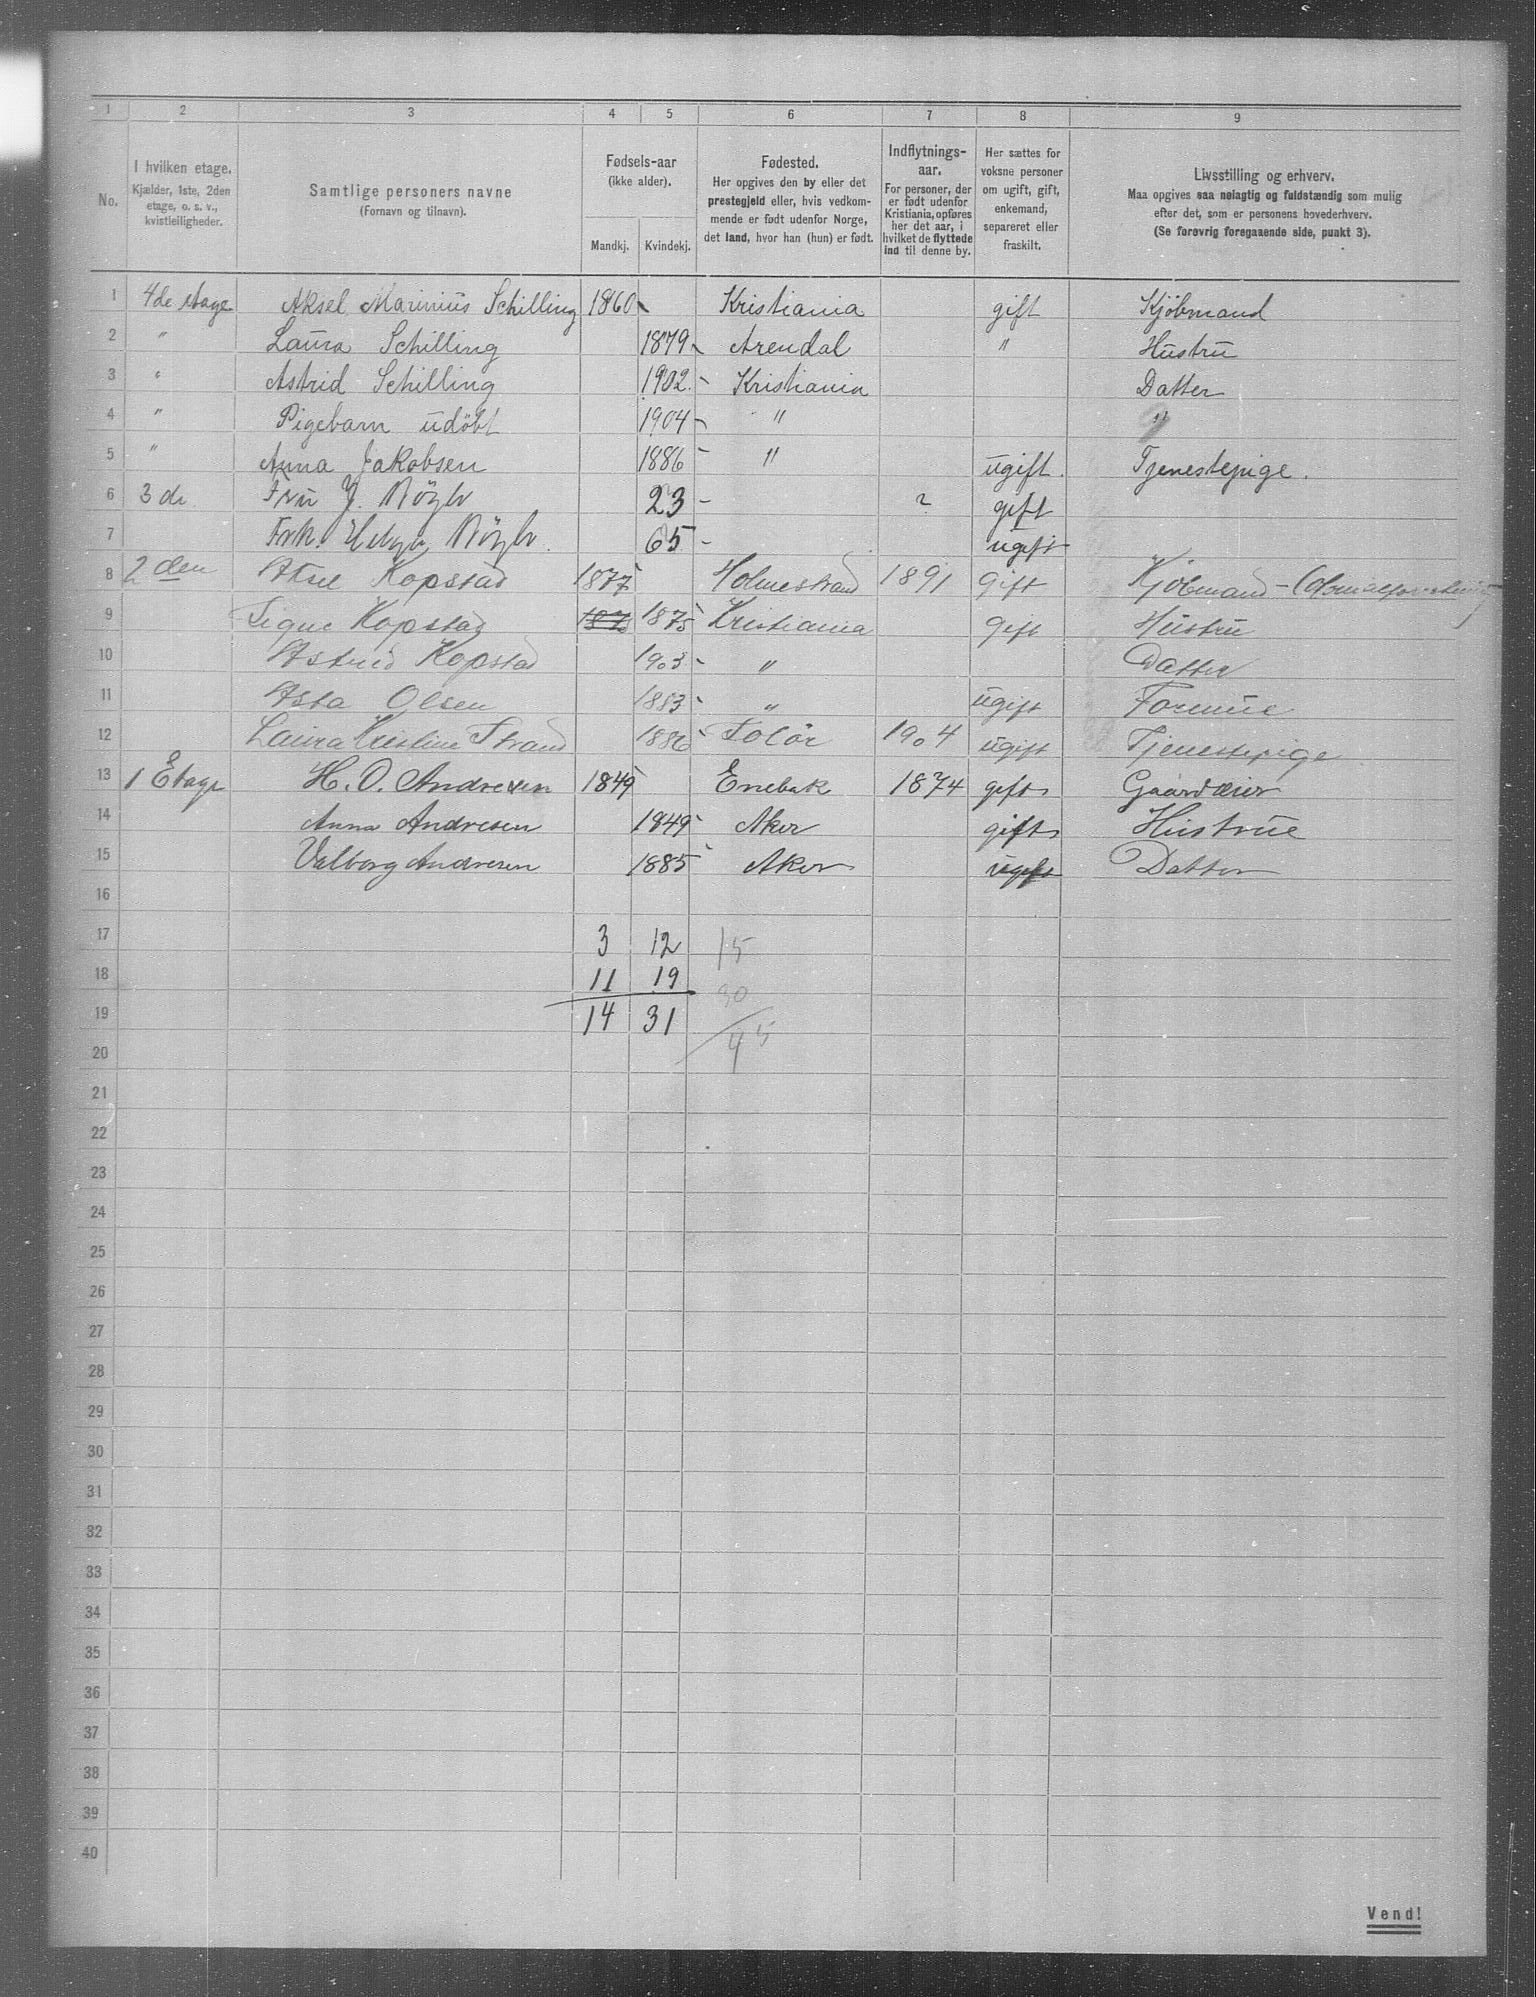 1 2 3 4 5 6 7 8 9
No.
I hvilken etage.
Kjælder, 1ste, 2den
etage, o. s. v.,
kvistleiligheder.
Samtlige personers navne
(Fornavn og tilnavn).
Fødsels-aar
(ikke alder).
Mandkj. Kvindekj.
Fødested.
Her opgives den by eller det
prestegjeld eller, hvis vedkom-
mende er født udenfor Norge,
det land, hvor han (hun) er født.
Indflytnings-
aar.
For personer, der
er født udenfor
Kristiania, opføres
her det aar, i
hvilket de flyttede
ind til denne by.
Her sættes for
voksne personer
om ugift, gift,
enkemand,
separeret eller
fraskilt.
Livsstilling og erhverv.
Maa opgives saa nøiagtig og fuldstændig som mulig
efter det, som er personens hovederhverv.
(Se forøvrig foregaaende side, punkt 3).
1 4de etage Aksel Marinius Schilling 1860 Kristiania gift Kjøbmand
2 " Laura Schilling 1879 Arendal " Hustru
3 " Astrid Schilling 1902 Kristiania Datter
4 " Pigebarn udøbt 1904 " "
5 " Anna Jakobsen 1886 " ugift. Tjenestepige.
6 3de Fru J. 23 ? gift
7 Frk. 65 ugift
8 2den Kopstad 1877 Holmestrand 1891 gift Kjøbmand -
9 Signe Kopstad 187 1875 Kristiania gift Hustru
10 Astrid Kopstad 1903 " Datter
11 Asta Olsen 1883 " ugift
12 Laura Kristine Strand 1886 Solør 1904 ugift Tjenestepige
13 1 Etage H. O. Andresen 1849 Enebak 1874 gift Gaardeier
14 Anna Andresen 1849 Aker gift Hustrue
15 Valborg Andresen 1885 Aker ugift Datter
16
17 3 12 15
18 11 19 30
19 14 31 45
20
21
22
23
24
25
26
27
28
29
30
31
32
33
34
35
36
37
38
39
40
Vend!